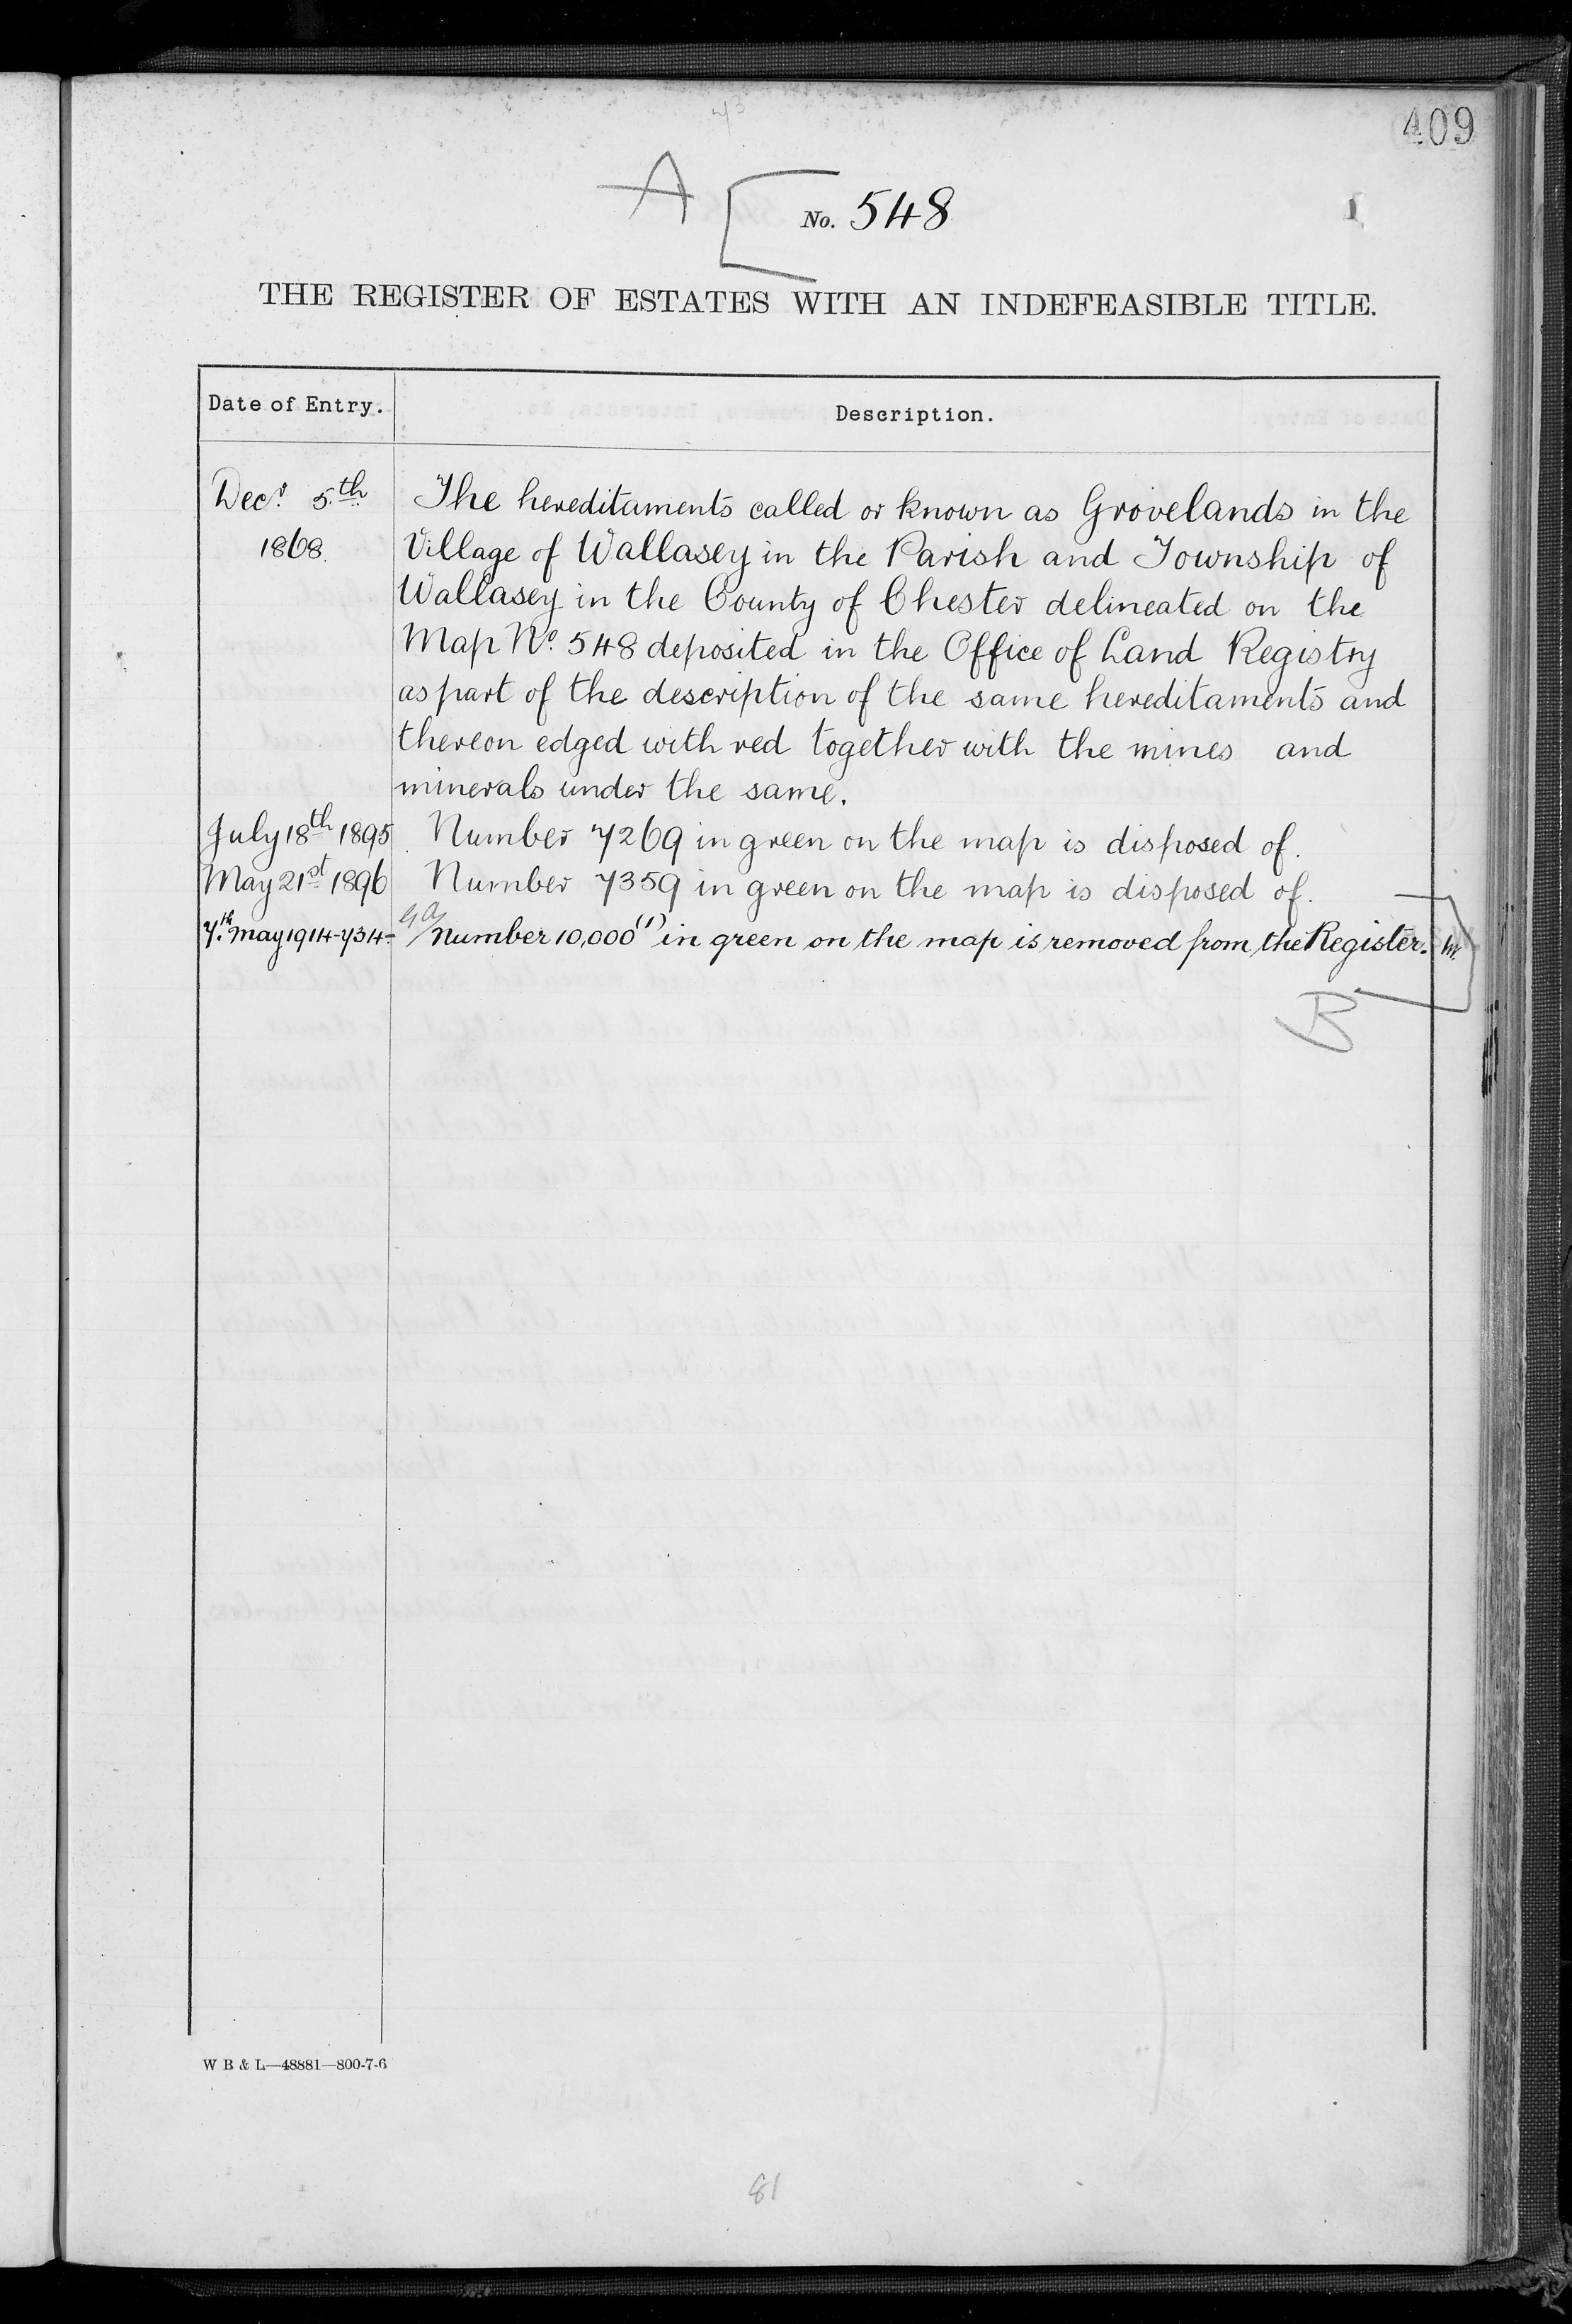 409
A
No. 548
THE REGISTER OF ESTATES WITH AN INDEFEASIBLE TITLE.
Date of Entry.
Description.
Decr. 5.th
1868.
The hereditaments called or known as Grovelands in the
Village of Wallasey in the Parish and Township of
Wallasey in the County of Chester delineated on the
Map No. 548 deposited in the Office of Land Registry
as part of the description of the same hereditaments and
thereon edged with red together with the mines and
minerals under the same.
July 18th 1895 Number 7269 in green on the map is disposed of.
May 21st 1896 Number 7359 in green on the map is disposed of.
7.th May 1914-734- Number 10,000(1) in green on the map is removed from the Register.
B
W B & L—48881—800-7-6
81